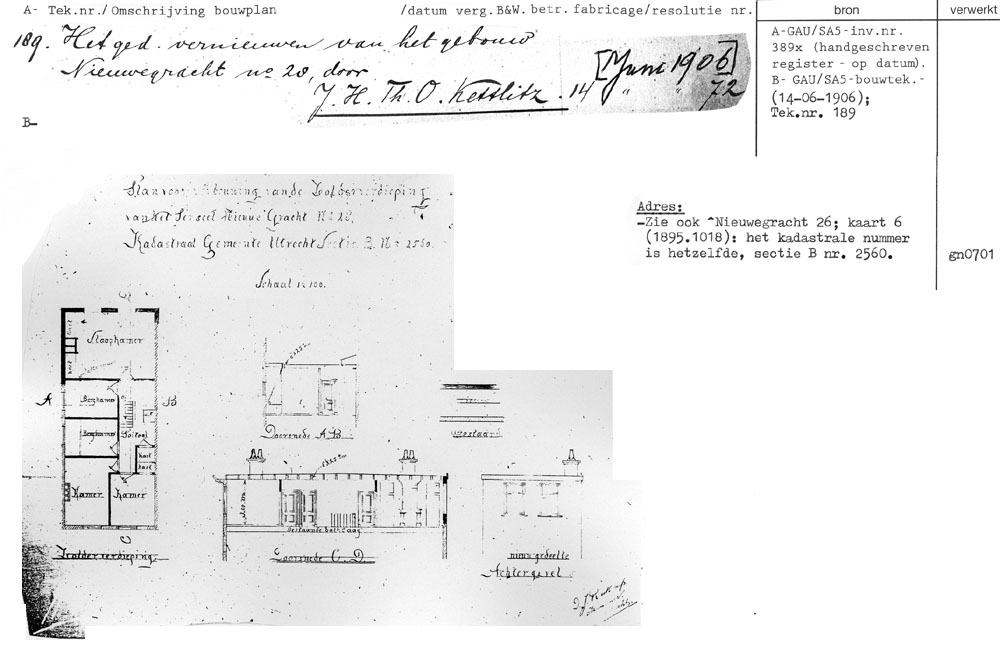 A- Tek.nr./Omschrijving bouwplan /datum verg.B&W.betr.fabricage/resolutie nr.
bron
verwerkt
189. Het ged. vernieuwen van het gebouw
Nieuwegracht no 28, door
J. H. Th. O. Kettlitz. 14 [Juni 1906]
" " 72
B-
A-GAU/SA5-inv.nr.
389x (handgeschreven
register - op datum).
B- GAU/SA5-bouwtek.-
(14-06-1906);
Tek.nr. 189
Adres:
-Zie ook ^Nieuwegracht 26; kaart 6
(1895.1018): het kadastrale nummer
is hetzelfde, sectie B nr. 2560.
gn0701
Plan voor van de Zolderverdieping
van het Perceel Nieuwe Gracht No 28.
Kadastraal Gemeente Utrecht Sectie B. No 2560.
Schaal 1 à 100.
C
Slaapkamer
kast
kast
A
Bergkamer
B
Bergkamer
Portaal
kast
kast
Kamer
Kamer
C
Zolderverdieping
Doorsnede A B.
Bestaande balklaag
Doorsnede C. D.
nieuw gedeelte
Achtergevel